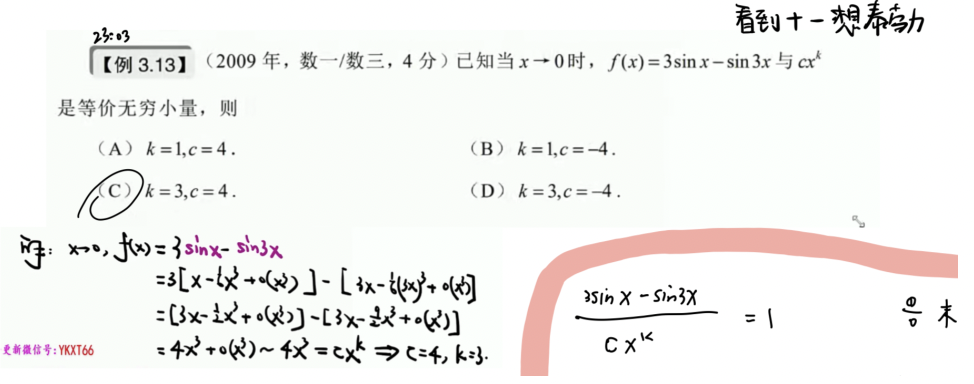 看到十一想泰勒
23:03
【例 3.13】（2009 年，数一/数三，4 分）已知当 x→0时，f(x)=3sin x−sin3x 与 cx^k
是等价无穷小量，则
（A） k=1,c=4．
（B） k=1,c=−4．
（C） k=3,c=4．
（D） k=3,c=−4．
解：x→0, f(x)=3sinx−sin3x
=3[x−1/6x³+o(x³)]−[3x−1/6(3x)³+o(x³)]
=[3x−1/2x³+o(x³)]−[3x−9/2x³+o(x³)]
=4x³+o(x³)~4x³=cx^k ⇒ c=4, k=3.
(3sin x −sin3x)/(c x^k) = 1
0/0 未
更新微信号：YKXT66